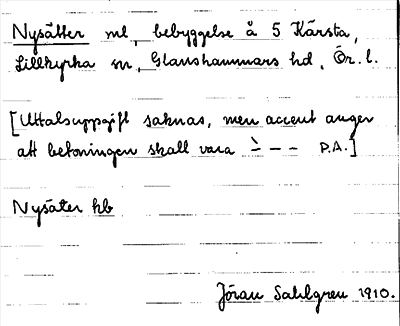 Nysätter ml, bebyggelse å 5 Kårsta,
Lillkyrka sn, Glanshammars hd, Ör. l.
[Uttalsuppgift saknas, men accent anger
att betoningen skall vara ∸̀ – – P.A.]
Nysäter kb
Jöran Sahlgren 1910.